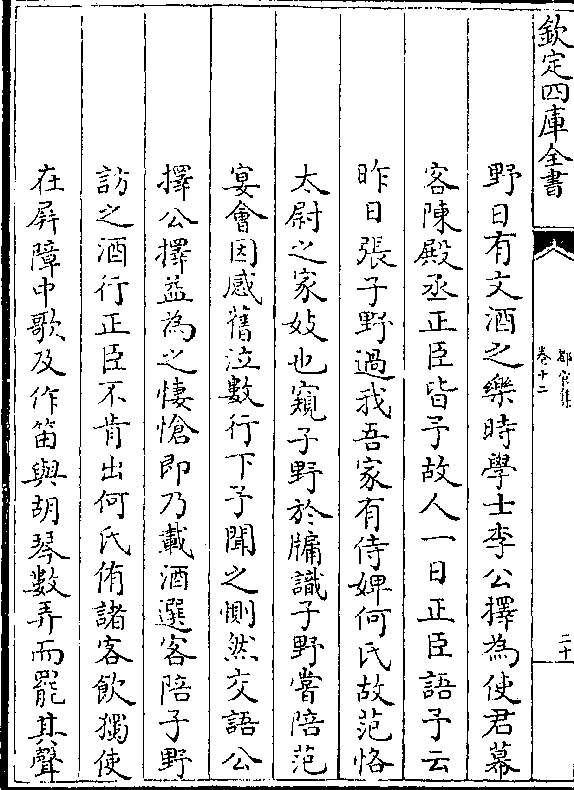 欽定四庫全書
都官集
卷十二
二十
野日有文酒之樂時學士李公擇為使君幕
客陳殿丞正臣皆予故人一日正臣語予云
昨日張子野過我吾家有侍婢何氏故范恪
太尉之家妓也窺子野於牗識子野嘗陪范
宴會因感舊泣數行下予聞之惻然交語公
擇公擇益為之悽愴即乃載酒選客陪子野
訪之酒行正臣不肯出何氏侑諸客飲獨使
在屏障中歌及作笛與胡琴數弄而罷其聲